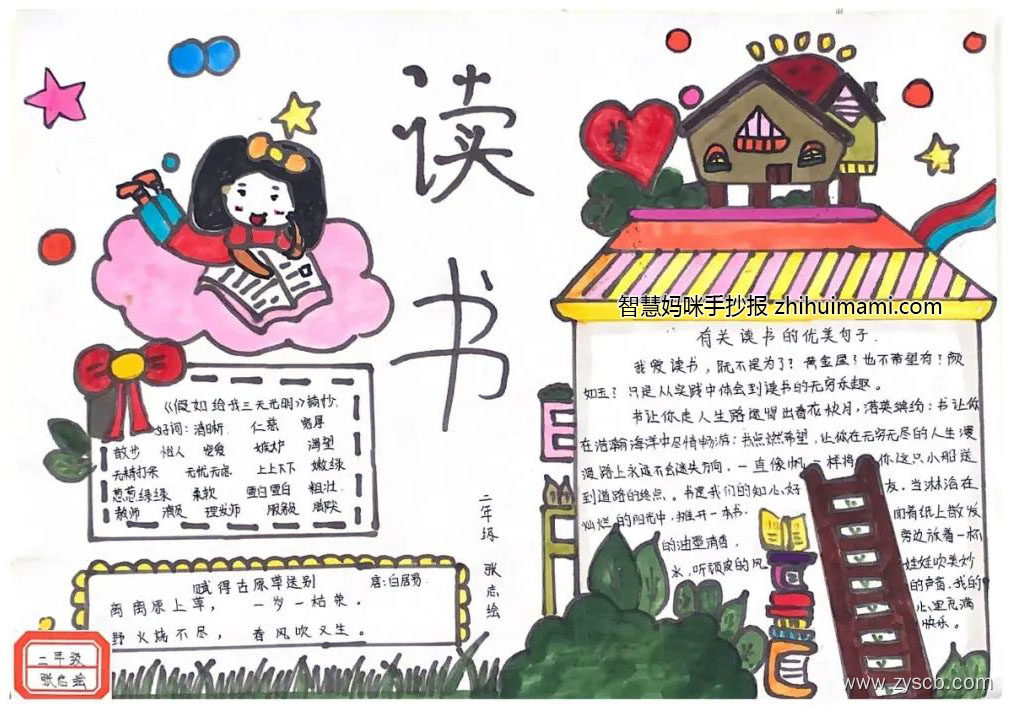 读
书
智慧妈咪手抄报 zhihuimami.com
《假如给我三天光明》摘抄
好词：清晰 仁慈 宽厚
散步 怡人 宠爱 嫉妒 渴望
无精打采 无忧无虑 上上下下 嫩绿
葱葱绿绿 柔软 雪白雪白 粗壮
教师 演员 理发师 服务员
赋得古原草送别 唐：白居易
离离原上草， 一岁一枯荣。
野火烧不尽， 春风吹又生。
二年级 张志绘
二年级
张志绘
有关读书的优美句子.
我爱读书，既不是为了？黄金屋！也不希望有！颜
如玉？只是从实践中体会到读书的无穷乐趣。
书让你走人生路途赏出春花秋月，落英缤纷：书让你
在浩瀚海洋中尽情畅游：书点燃希望，让你在无穷无尽的人生漫
漫路上永远不会迷失方向，一直像帆一样将你这只小船送
到道路的终点。书是我们的知心好友，当沐浴在
灿烂的阳光中，摊开一本书，闻着纸上散发
的油墨清香，旁边放着一杯
水，听顽皮的风娃娃吹美妙
的声音，我的
心里充满
快乐。
www.zyscb.com